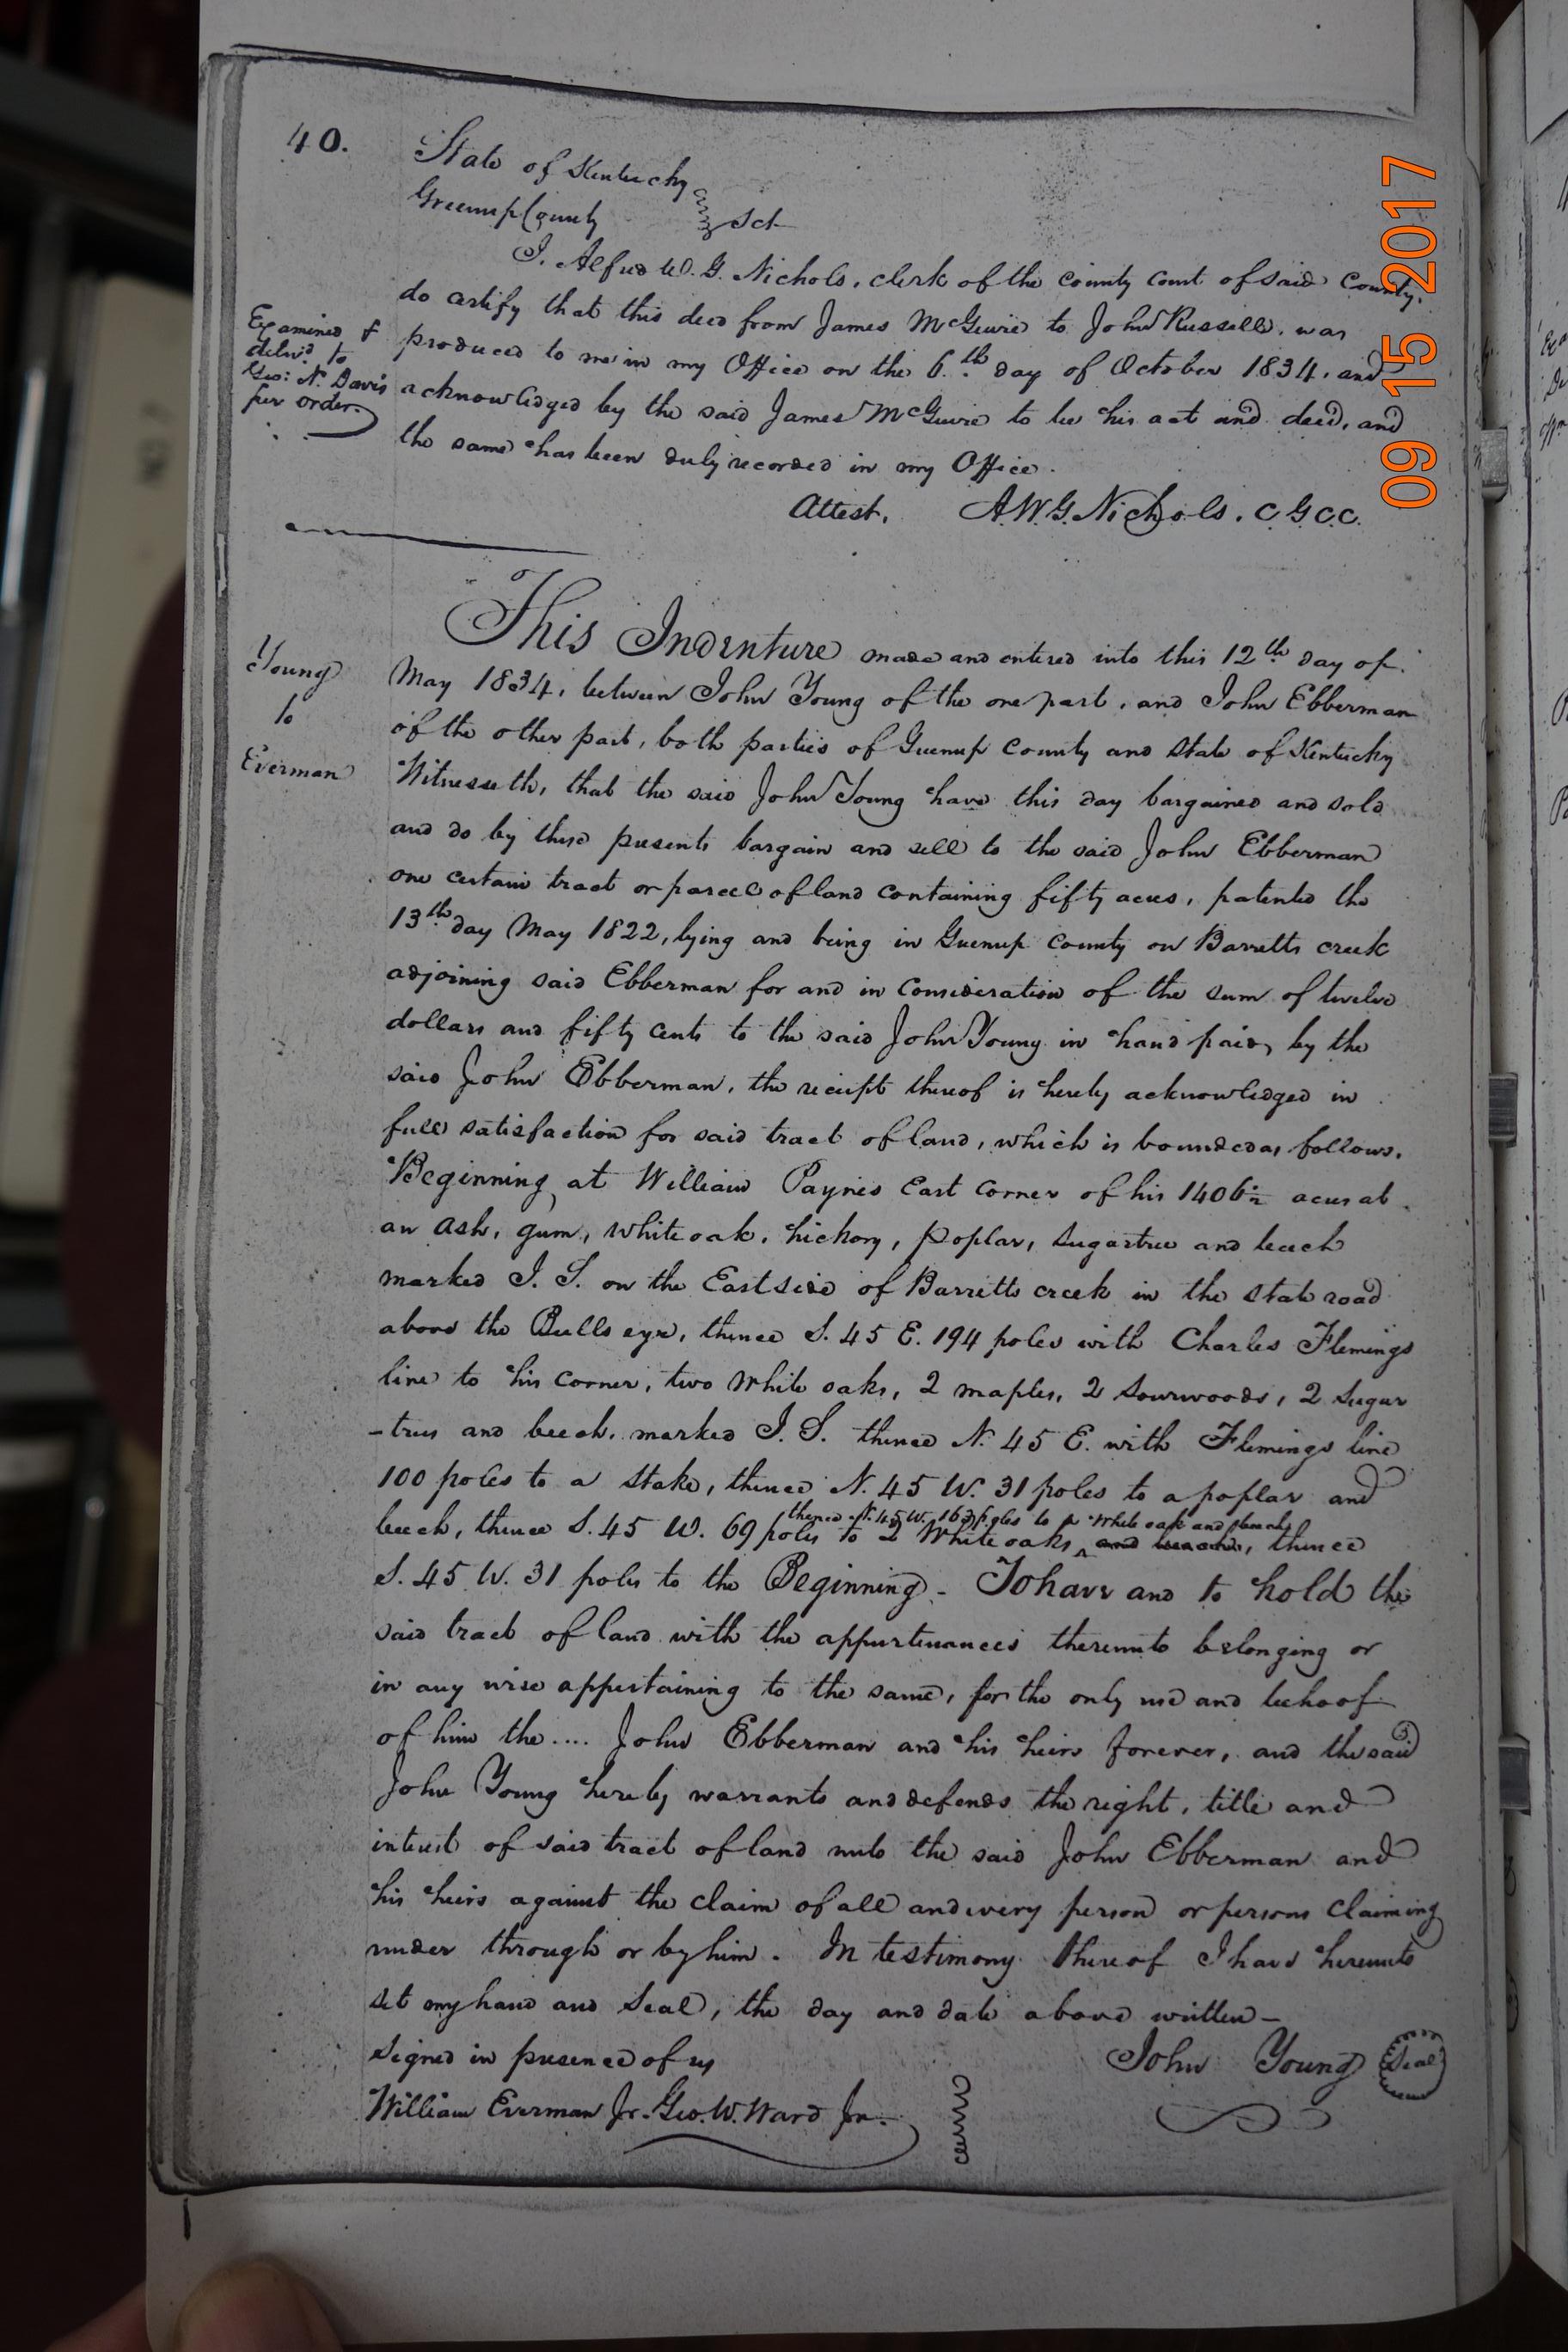 40.
State of Kentucky
Greenup County } Sct
I. Alfred W. G. Nichols, clerk of the county court of said County,
do certify that this deed from James McGuire to John Russell, was
produced to me in my Office on the 6th day of October 1834, and
acknowledged by the said James McGuire to be his act and deed, and
the same has been duly recorded in my Office.
Attest, A.W.G. Nichols. C G C C.
Examined &
delivd to
Geo: N. Davis
per order.
Young
to
Everman
This Indenture made and entered into this 12th day of
May 1834, between John Young of the one part, and John Ebberman
of the other part, both parties of Greenup County and State of Kentucky
Witnesseth, that the said John Young have this day bargained and sold
and do by these presents bargain and sell to the said John Ebberman
one certain tract or parcel of land containing fifty acres, patented the
13th day May 1822, lying and being in Greenup County on Barretts creek
adjoining said Ebberman for and in consideration of the sum of twelve
dollars and fifty cents to the said John Young in hand paid, by the
said John Ebberman, the receipt thereof is hereby acknowledged in
full satisfaction for said tract of land, which is bounded as follows.
Beginning at William Paynes East Corner of his 1406½ acres at
an ash, gum, white oak, hickory, poplar, sugartree and beech
marked I. S. on the East side of Barretts creek in the state road
above the Bulls eye, thence S. 45 E. 194 poles with Charles Flemings
line to his corner, two white oaks, 2 maples, 2 sourwoods, 2 sugar
-trees and beech, marked I. S. thence N. 45 E. with Flemings line
100 poles to a stake, thence N. 45 W. 31 poles to a poplar and
thence N. 45 W. 163 poles to a White oak and beech
beech, thence S. 45 W. 69 poles to 2 White oaks ^ and beech, thence
S. 45 W. 31 poles to the Beginning - To have and to hold the
said tract of land with the appurtenances thereunto belonging or
in any wise appertaining to the same, for the only use and behoof
of him the .... John Ebberman and his heirs forever, and the said
John Young hereby warrants and defends the right, title and
interest of said tract of land unto the said John Ebberman and
his heirs against the claim of all and every person or persons claiming
under through or by him. In testimony thereof I have hereunto
set my hand and Seal, the day and date above written -
Signed in presence of us
John Young Seal
William Everman Jr. Geo. W. Ward Jr.
09 15 2017